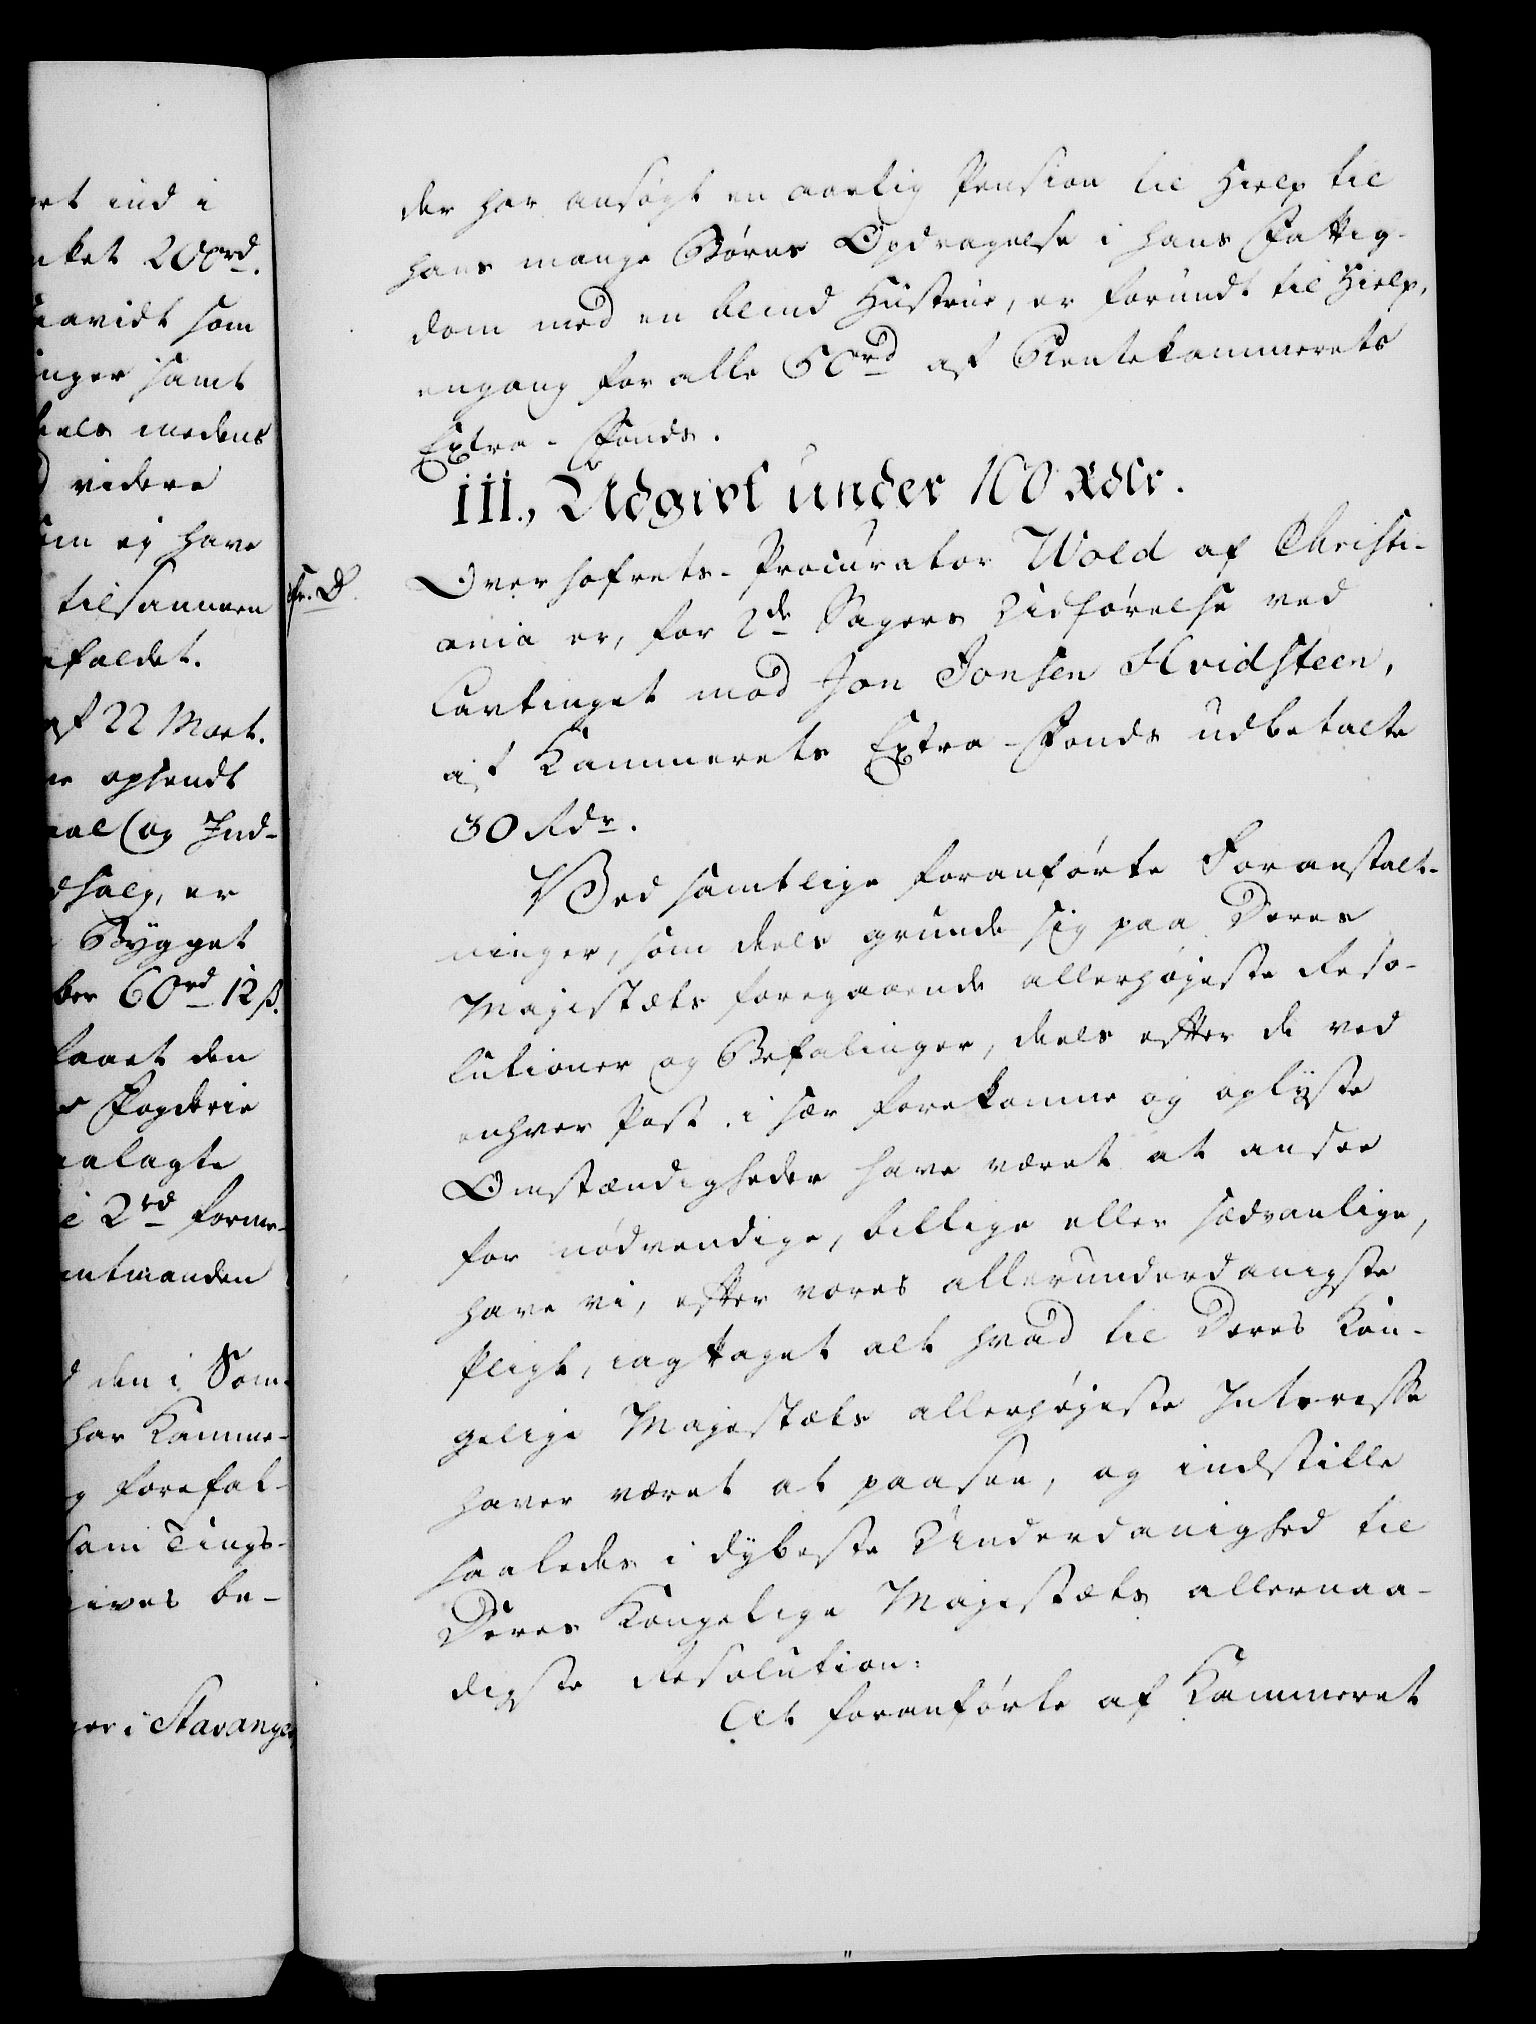 ort ind i
nket 200rd.
saavidt som
inger samt
deels medens
videre
som ej have
tilsammen
efaldet.
af 22 Mart.
ne opsendt
aal (og Ind-
dhalg, er
Bygget
ber 60rd 12 ß.
laaet den
Fogderie
aalagte
e 2rd forme-
mtmanden
den i Som-
har Kamme-
g forefal-
som Tings-
gives be-
ger i Stavanger
der har ansøgt en aarlig Pension til Hielp til
hans mange Børns Opdragelse i hans Fattig-
dom med en blind Hustrue, er forundt til Hielp,
engang for alle 50rd af Rentekammerets
Extra-Fonds.
III., Udgivt under 100 Rdlr.
Fr. D.
Overhofrets-Procurator Wold af Christi-
ania er, for 2de Sagers Udførelse ved
Lavtinget mod Jon Jonsen Hvidsteen,
af Kammerets Extra-Fonds udbetalte
30 Rdr.
Ved samtlige foranførte Foranstalt-
ninger, som deels grunde sig paa Deres
Majestæts foregaaende allerhøjeste Reso-
lutioner og Befalinger, deels efter de ved
enhver Post i sær forekomne og oplyste
Omstændigheder have været at ansee
for nødvendige, billige eller sædvanlige,
have vi, efter vores allerunderdanigste
Pligt, iagttaget alt hvad til Deres Kon-
gelige Majestæts allerhøjeste Interesse
haver været at paasee, og indstille
saaledes i dybeste Underdanighed til
Deres Kongelige Majestæts allernaa-
digste Resolution:
At foranførte af Kammeret